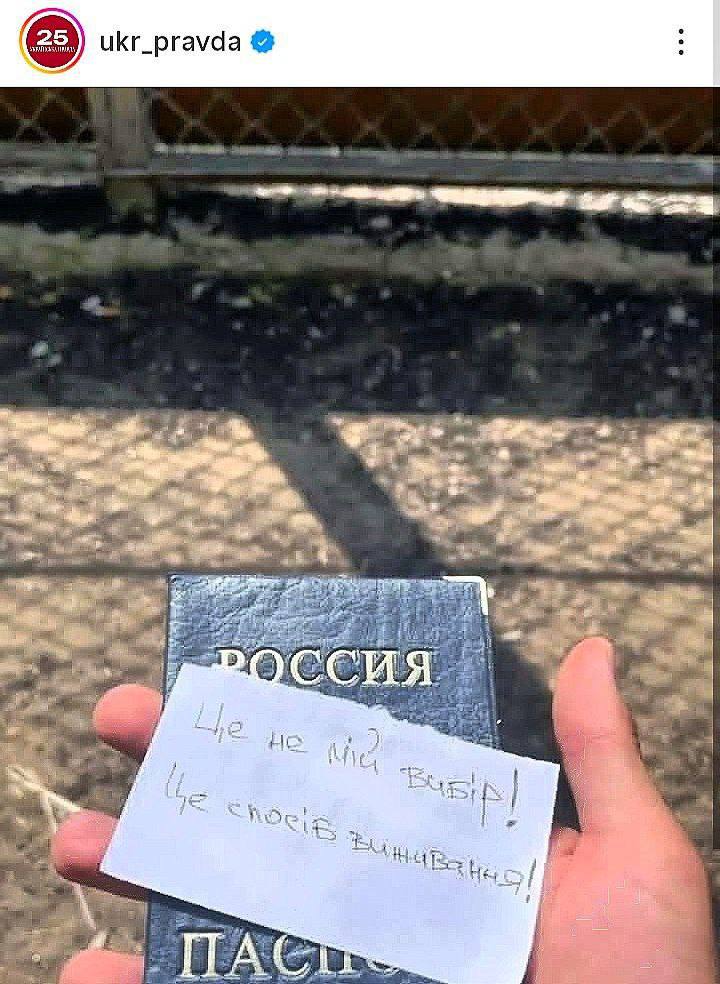 25
УКРАЇНСЬКА ПРАВДА
ukr_pravda
РОССИЯ
Це не мій вибір!
Це спосіб виживання!